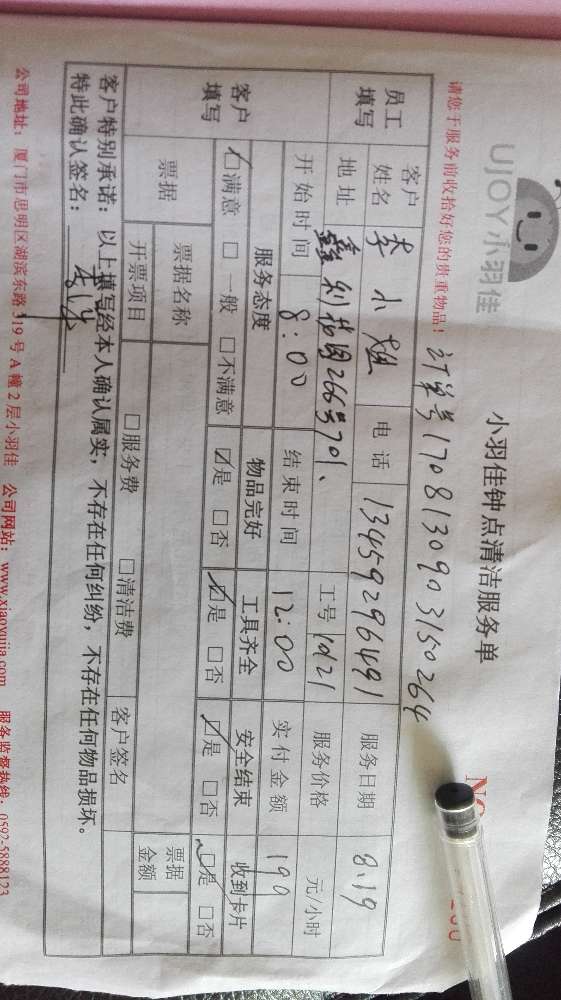 UJOY小羽佳
小羽佳钟点清洁服务单
NO
请您于服务前收拾好您的贵重物品！
订单号170813090315026​4
员工填写 客户姓名 李小姐 电话 13459296491 服务日期 8.19
地址 266号701、 工号 1021 服务价格 元/小时
开始时间 8:00 结束时间 12:00 实付金额 190
客户填写 服务态度 物品完好 工具齐全 安全结束 收到卡片
☑满意 □一般 □不满意 ☑是 □否 ☑是 □否 ☑是 □否 ☑是 □否
票据 票据名称 票据金额
开票项目 □服务费 □清洁费 客户签名
客户特别承诺：以上填写经本人确认属实，不存在任何纠纷，不存在任何物品损坏。
特此确认签名：
公司地址：厦门市思明区湖滨东路319号A幢2层小羽佳 公司网站：www.xiaoyujia.com 服务监督热线：0592-5888123